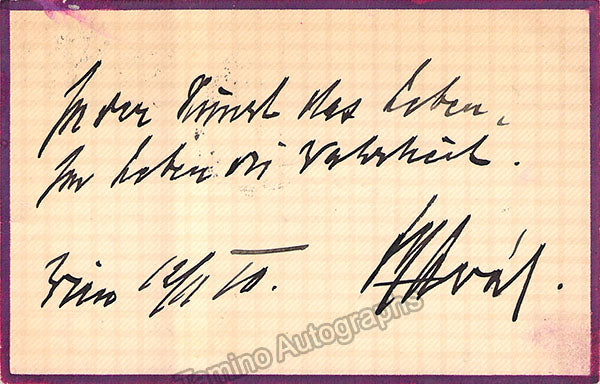 In der Kunst das Leben,
Im Leben die Wahrheit.
Wien 12/11 10.
Tamino Autographs